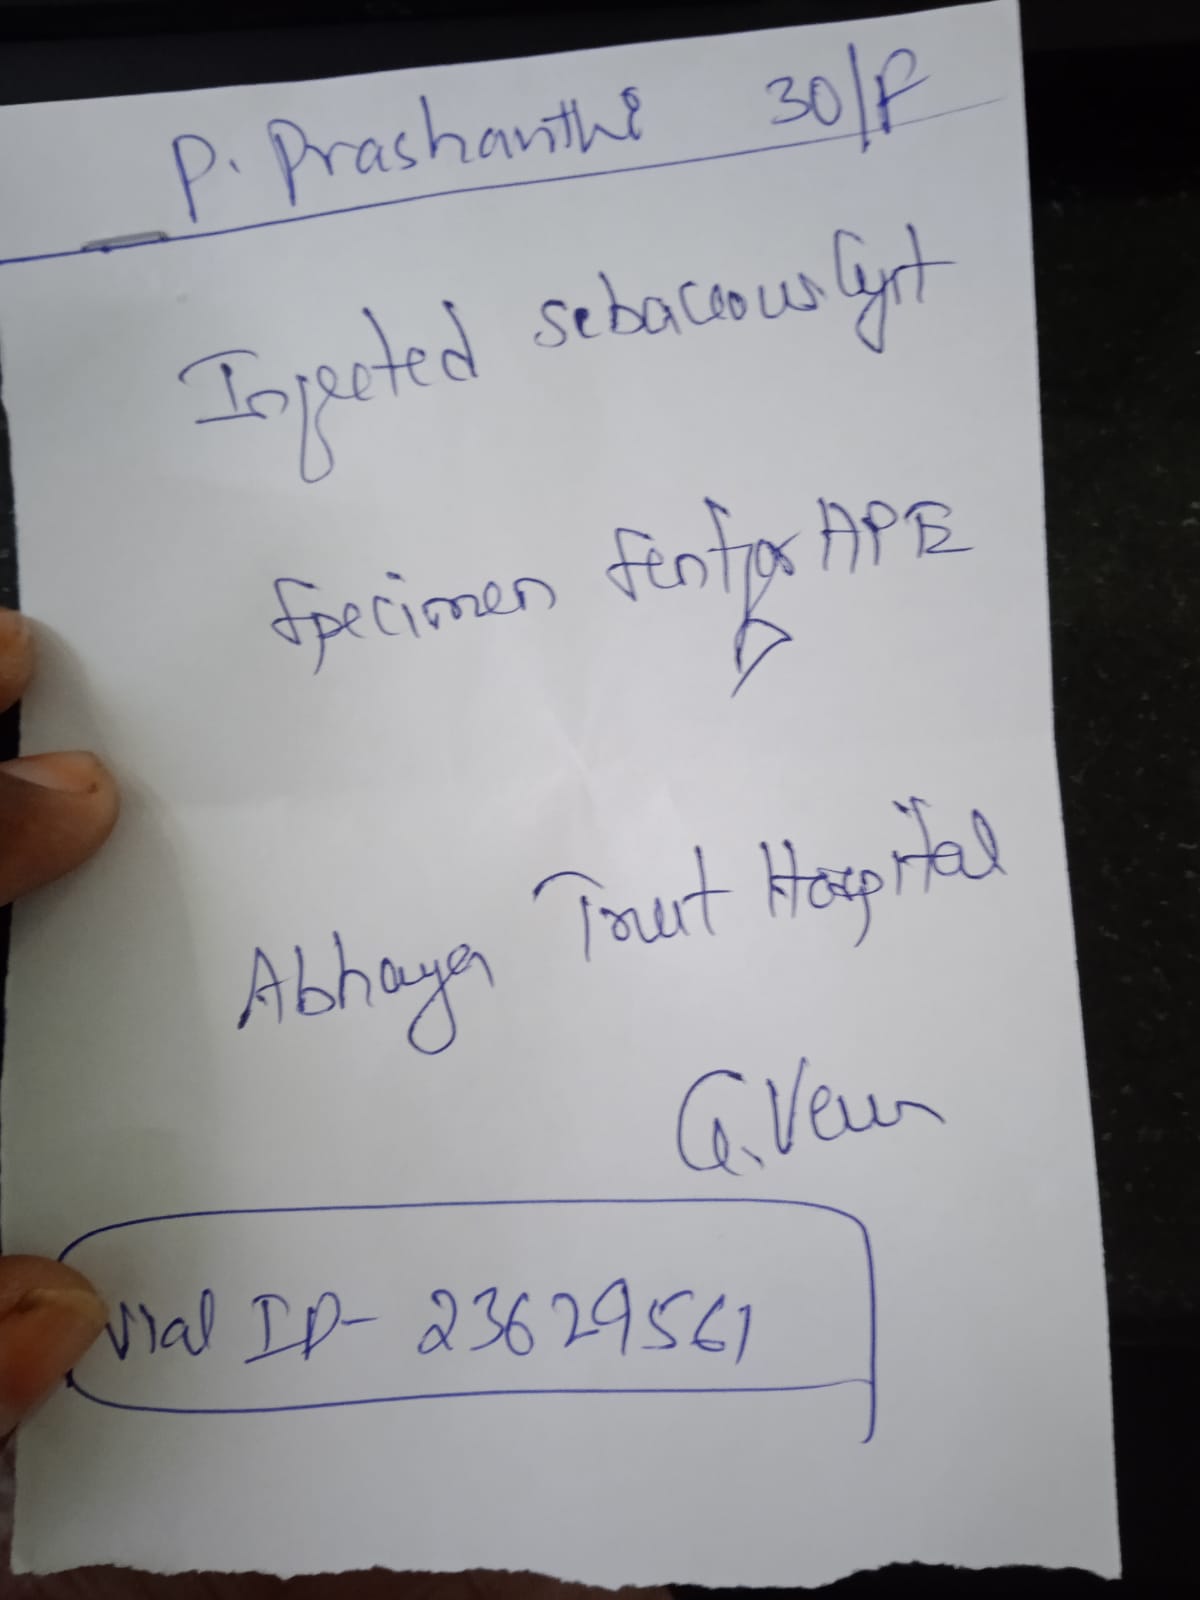 P. Prashanthi 30/F
Injected sebaceous Cyst
Specimen sent for HPE
Abhaya Trust Hospital
G. Venu
Vial ID- 23629561